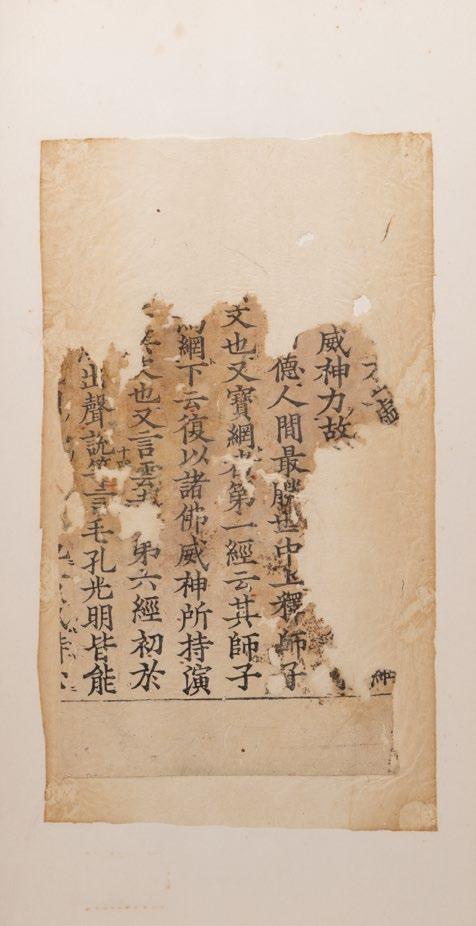 威神力故
德人間最勝世中上釋師子
文也又寶網者第一經云其師子
網下云復以諸佛威神所持演
文也又言雲 第六經初於
出聲說 言毛孔光明皆能
仲